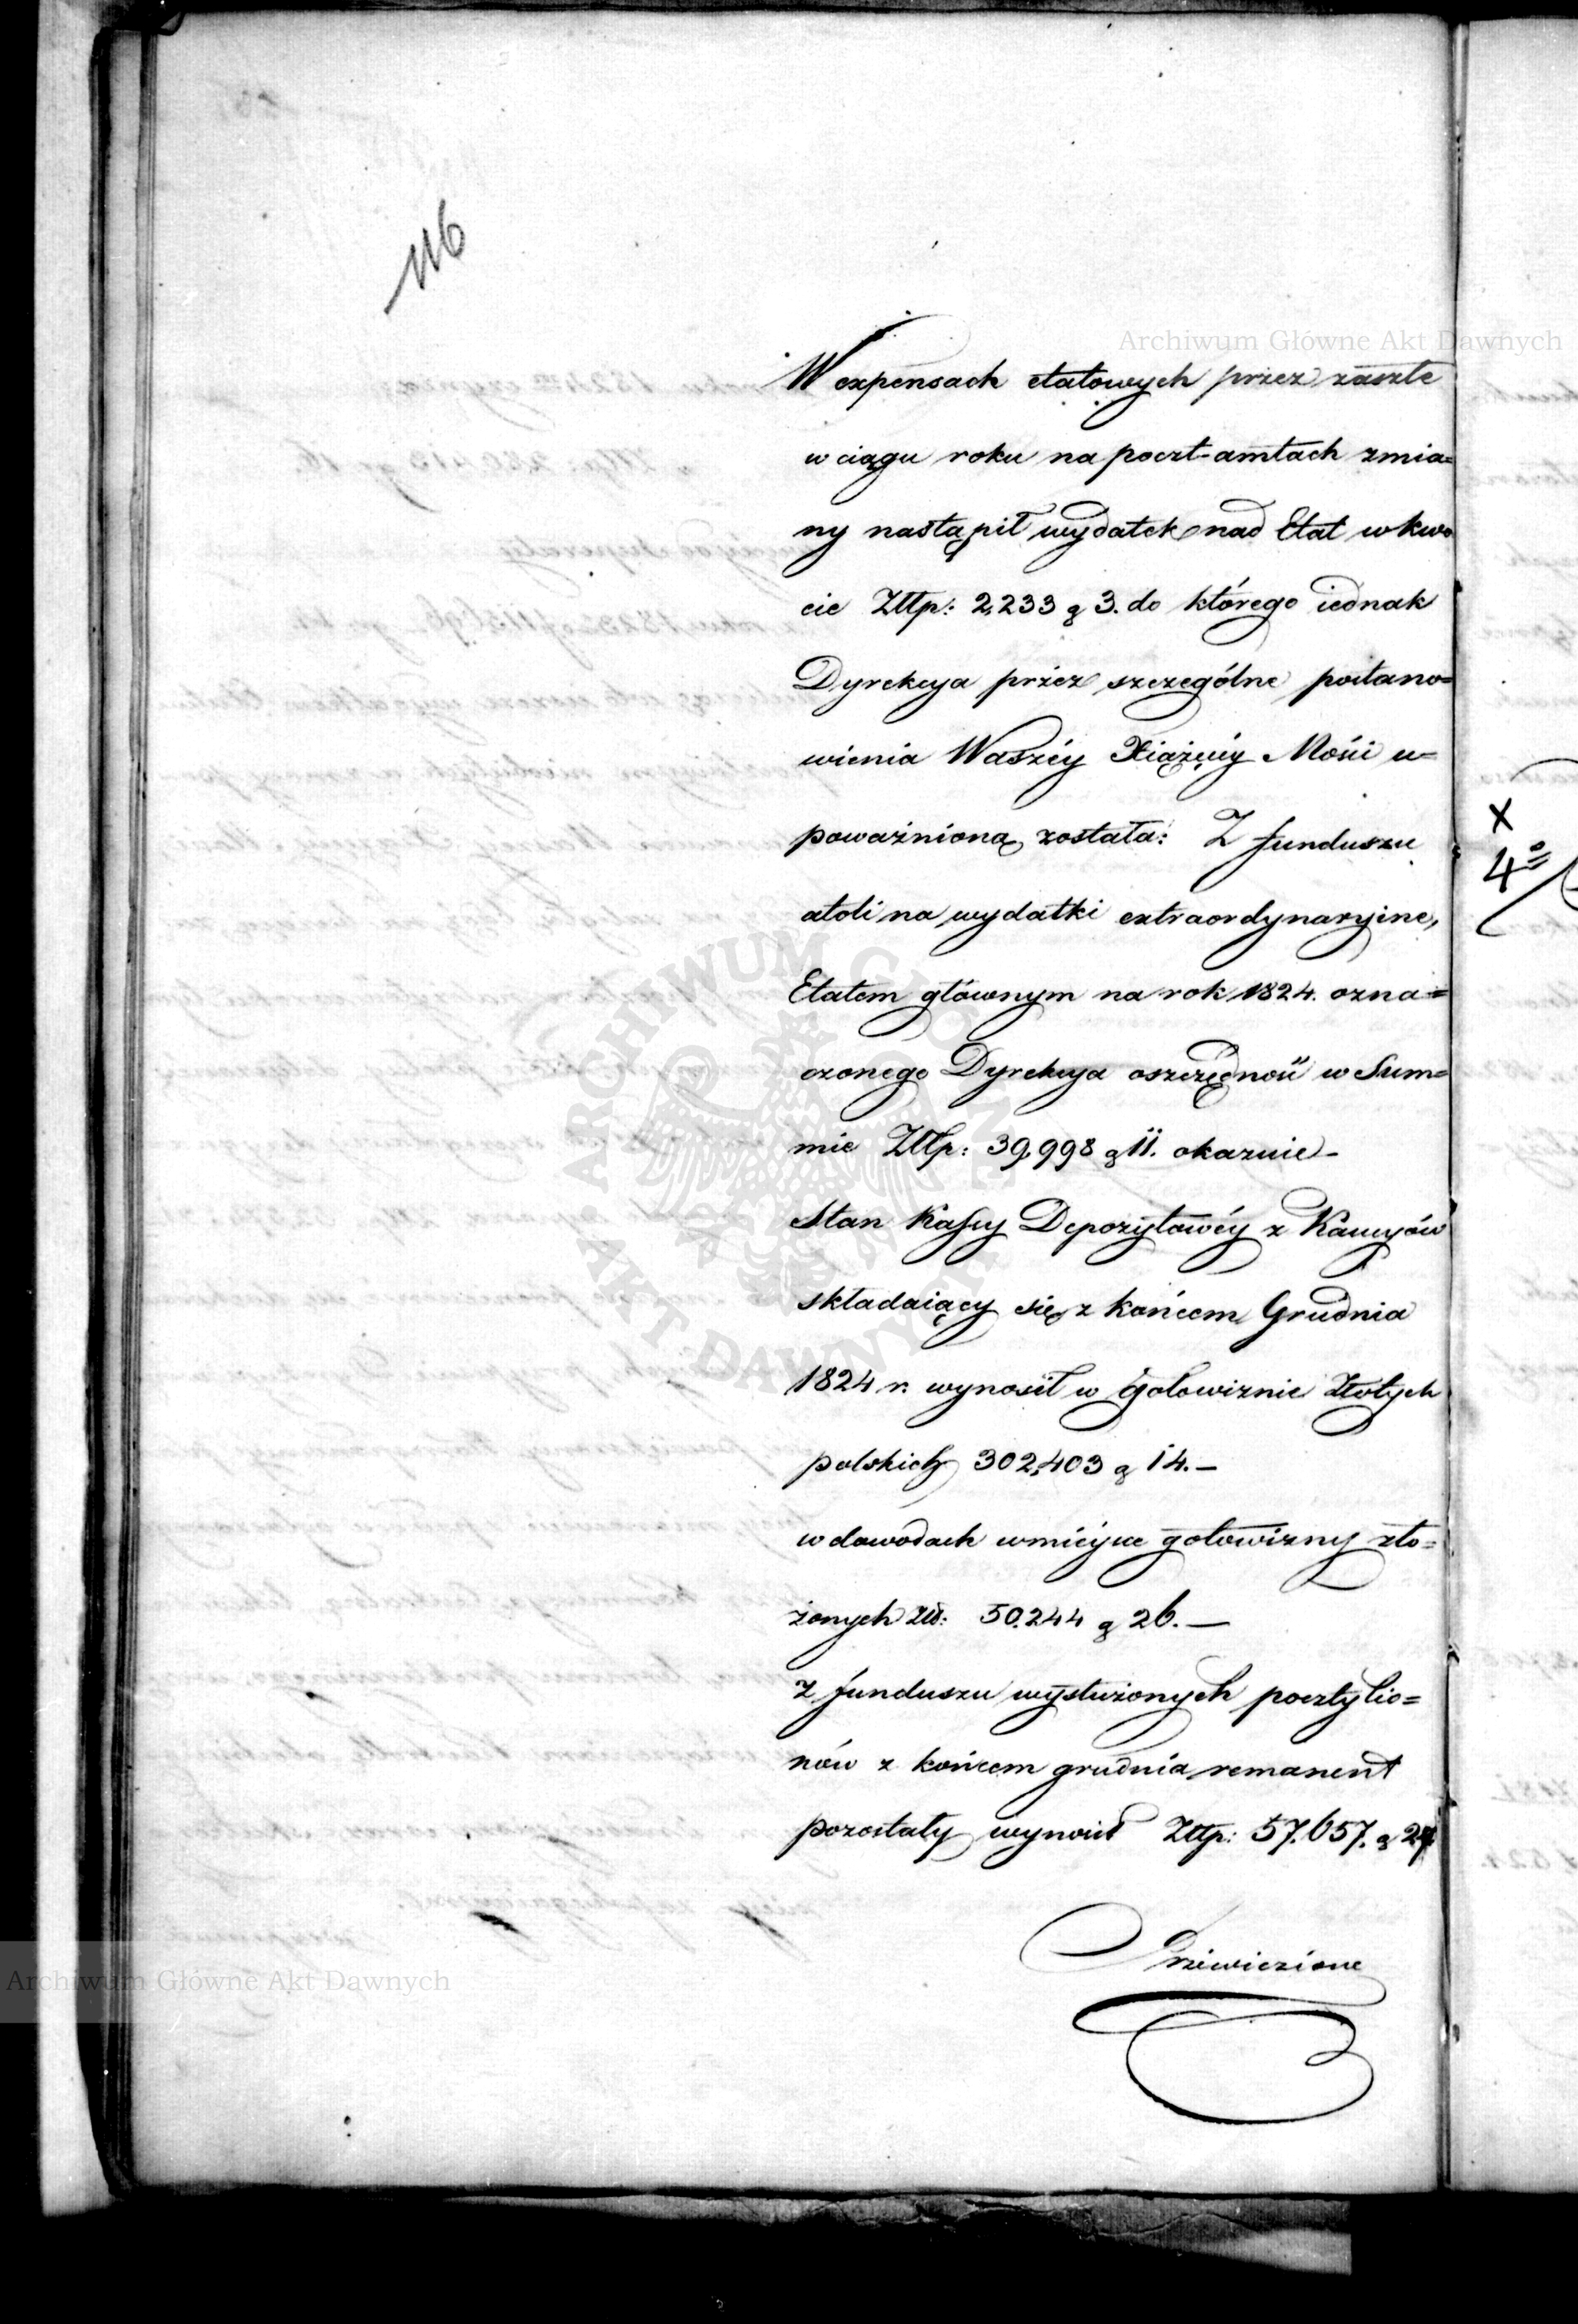 116
Archiwum Główne Akt Dawnych
W expensach etatowych przez zaszłe
w ciągu roku na poczt-amtach zmia=
ny nastąpił wydatek nad Etat w kwo
cie Złłp: 2,233 g 3. do którego iednak
Dyrekcya przez szczególne postano=
wienia Waszéy Xiążęcéy Mości u=
poważnioną została: Z funduszu
atoli na wydatki extraordynaryine,
Etatem głównym na rok 1824. ozna=
czonego Dyrekcya oszczędność w Sum=
mie Złłp: 39,998 g 11. okazuie –
Stan Kassy Depozytowéy z Kaucyów
składaiący się z końcem Grudnia
1824 r. wynosił w gotowiznie Złotych
polskich 302,403 g 14. –
w dowodach w mieysce gotowizny zło=
żonych Złł: 50.244 g 26. —
Z funduszu wysłużonych pocztylio=
nów z końcem grudnia remanent
pozostały wynosił Złłp: 57.657. g 27
X
4º
ARCHIWUM GŁÓWNE AKT DAWNYCH
Archiwum Główne Akt Dawnych